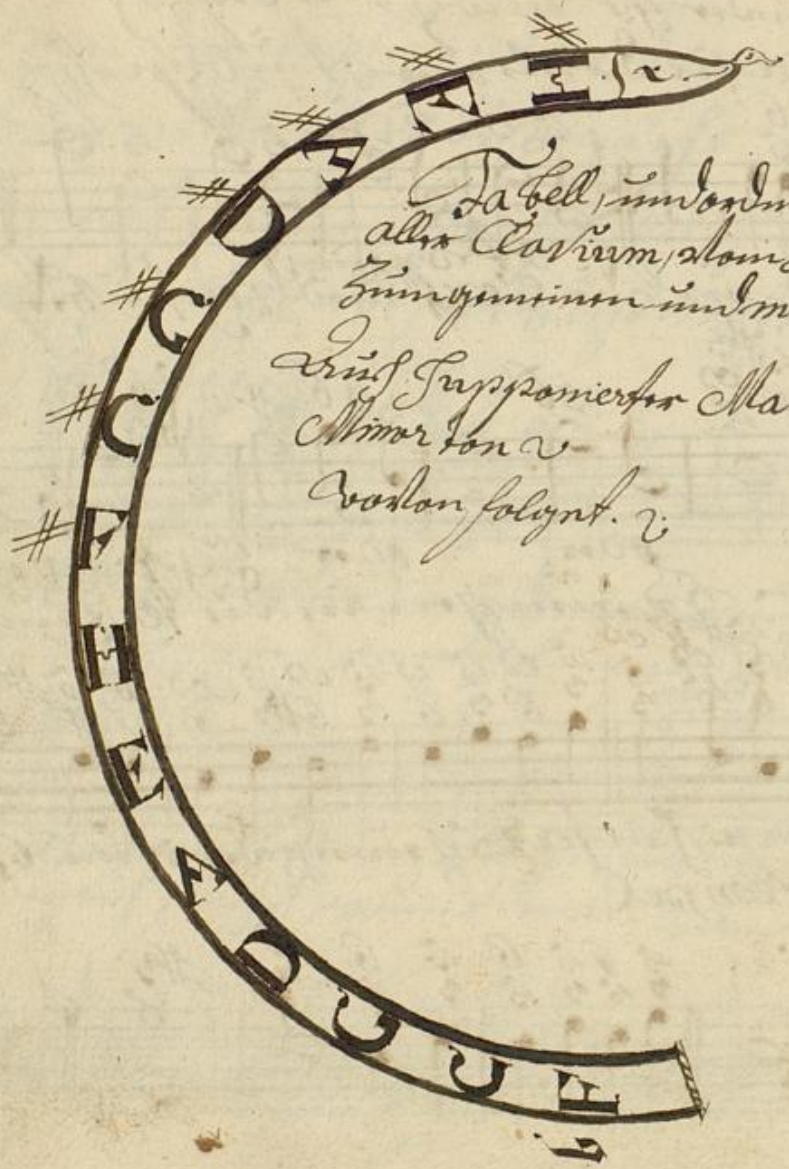 # H
# E
# A
# D
# G
# C
# F
H
E
A
D
G
C
F
b
Tabell, und ordn
aller Clavium, vom
Zum gemeinen und m
Auch Supponierter Ma
Minor ton
wovon folget.